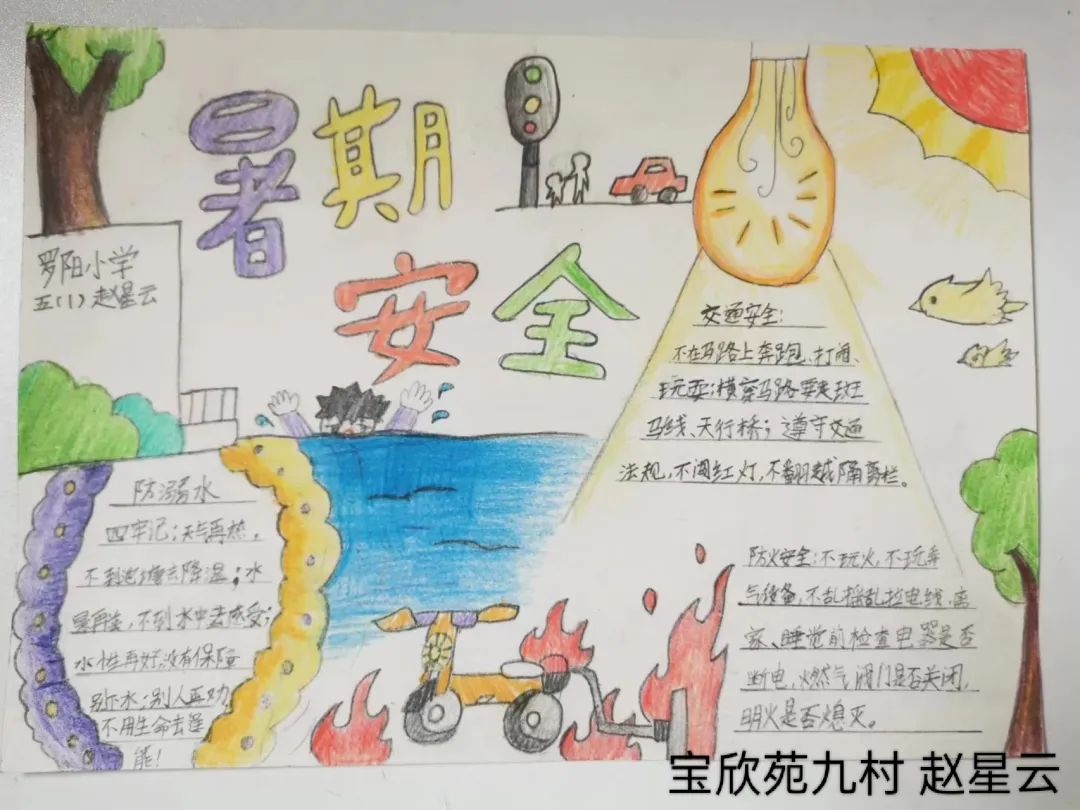 暑期
安全
罗阳小学
五(1)赵星云
交通安全:
不在马路上奔跑、打闹、
玩耍;横穿马路要走斑
马线、天行桥;遵守交通
法规,不闯红灯,不翻越隔离栏。
防溺水
四牢记:天气再热,
不到池塘去降温;水
再 ,不到水中去感受;
水性再好,没有保障
别下水;别人再劝
不用生命去逞
能!
防火安全:不玩火,不玩弄
气设备,不乱搭乱拉电线,离
家、睡觉前检查电器是否
断电,燃气阀门是否关闭,
明火是否熄灭。
宝欣苑九村 赵星云